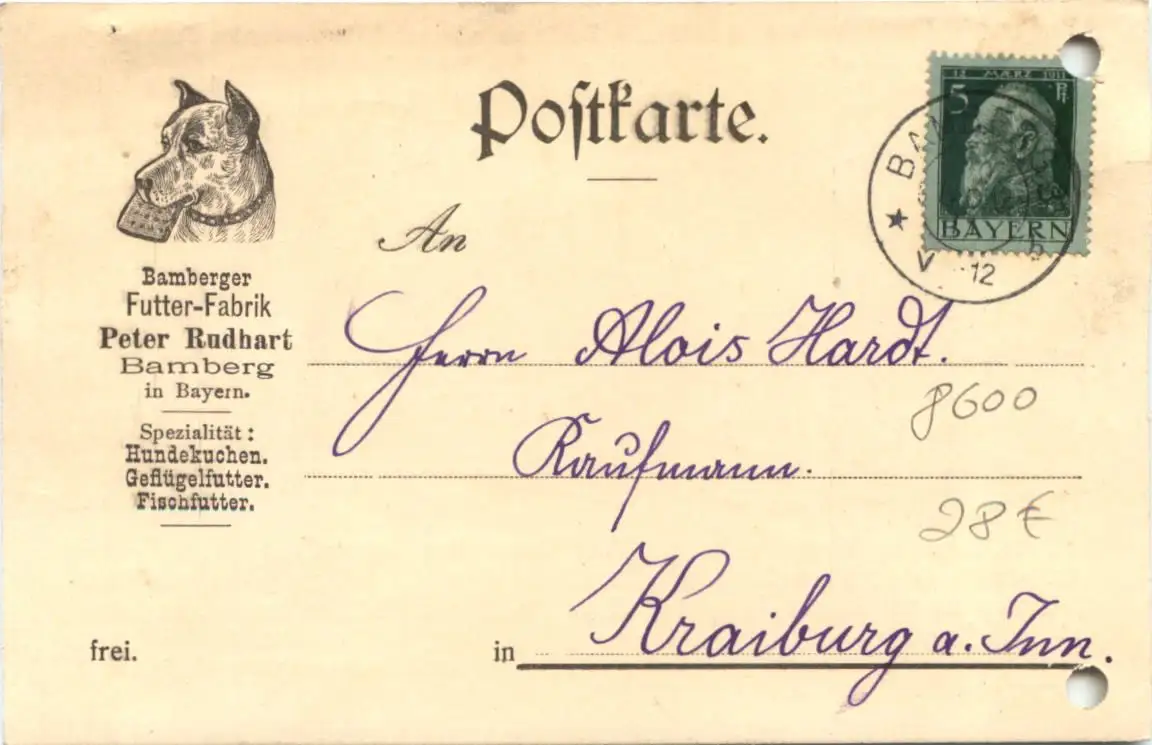 Postkarte.
12 MÄRZ 1911
5 Pf.
BAYERN
V 12 b
An
Bamberger
Futter-Fabrik
Peter Rudhart
Bamberg
in Bayern.
Spezialität:
Hundekuchen.
Geflügelfutter.
Fischfutter.
Herrn Alois Hardt.
Kaufmann.
8600
28€
frei.
in Kraiburg a. Inn.